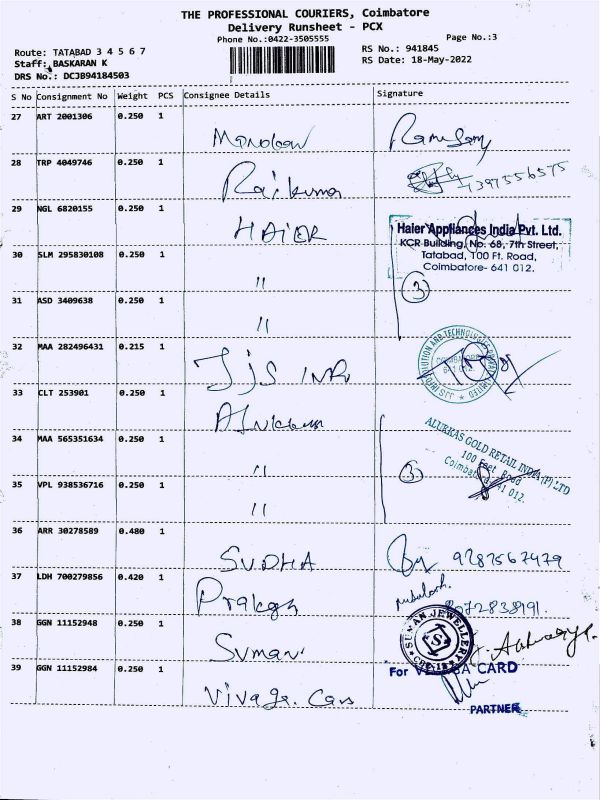 THE PROFESSIONAL COURIERS, Coimbatore
Delivery Runsheet - PCX
Phone No.:0422-3505555
Page No.:3
Route: TATABAD 3 4 5 6 7
RS No.: 941845
Staff: BASKARAN K
RS Date: 18-May-2022
DRS No.: DCJB94184503
S No Consignment No Weight PCS Consignee Details Signature
27 ART 2001306 0.250 1
28 TRP 4049746 0.250 1
Rajkumar
29 NGL 6820155 0.250 1
HAIER
Haier Appliances India Pvt. Ltd.
KCR Building, No. 68, 7th Street,
Tatabad, 100 Ft. Road,
Coimbatore- 641 012.
30 SLM 295830108 0.250 1
"
3
31 ASD 3409638 0.250 1
"
32 MAA 282496431 0.215 1
33 CLT 253901 0.250 1
34 MAA 565351634 0.250 1
"
3
ALUKKAS GOLD RETAIL INDIA (P) LTD
100 Feet Road
35 VPL 938536716 0.250 1
"
36 ARR 30278589 0.480 1
SUDHA 9287567479
37 LDH 700279856 0.420 1
Prakash
8072838191.
38 GGN 11152948 0.250 1
Suman
SUMAN JEWELLERY
S
39 GGN 11152984 0.250 1
Vivaga. Cars
CARD
PARTNER